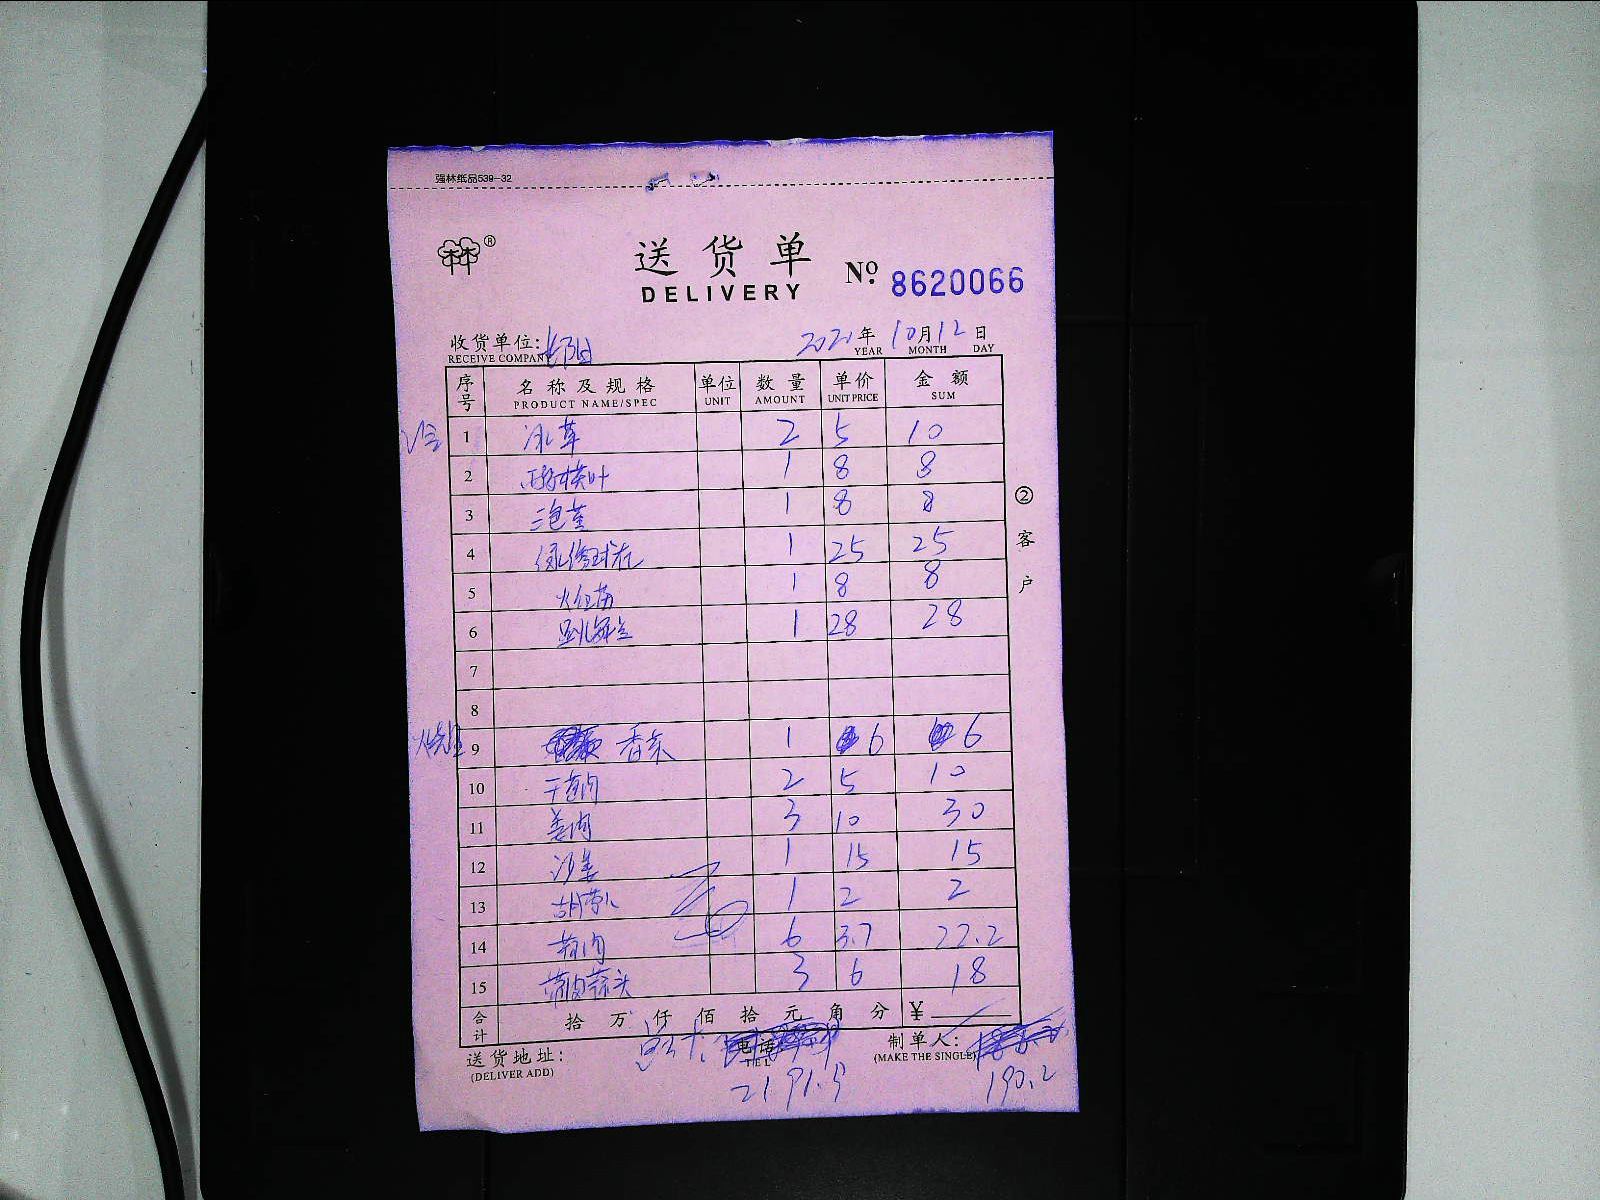 强林纸品539-32
®
送货单
DELIVERY
№ 8620066
收货单位:
RECEIVE COMPANY
2021年10月12日
YEAR MONTH DAY
序号 名称及规格 单位 数量 单价 金额
PRODUCT NAME/SPEC UNIT AMOUNT UNIT PRICE SUM
1 冰草 2 5 10
2 1 8 8
3 1 8 8
4 1 25 25
5 1 8 8
6 1 28 28
7
8
9 香 1 6 6
10 干 肉 2 5 10
11 姜肉 3 10 30
12 沙姜 1 15 15
13 胡萝卜 1 2 2
14 肉 6 3.7 22.2
15 蒜头 3 6 18
合计 拾 万 仟 佰 拾 元 角 分 ¥
②客户
送货地址:
(DELIVER ADD)
电话
TEL
制单人:
(MAKE THE SINGLE)
2191.9
190.2